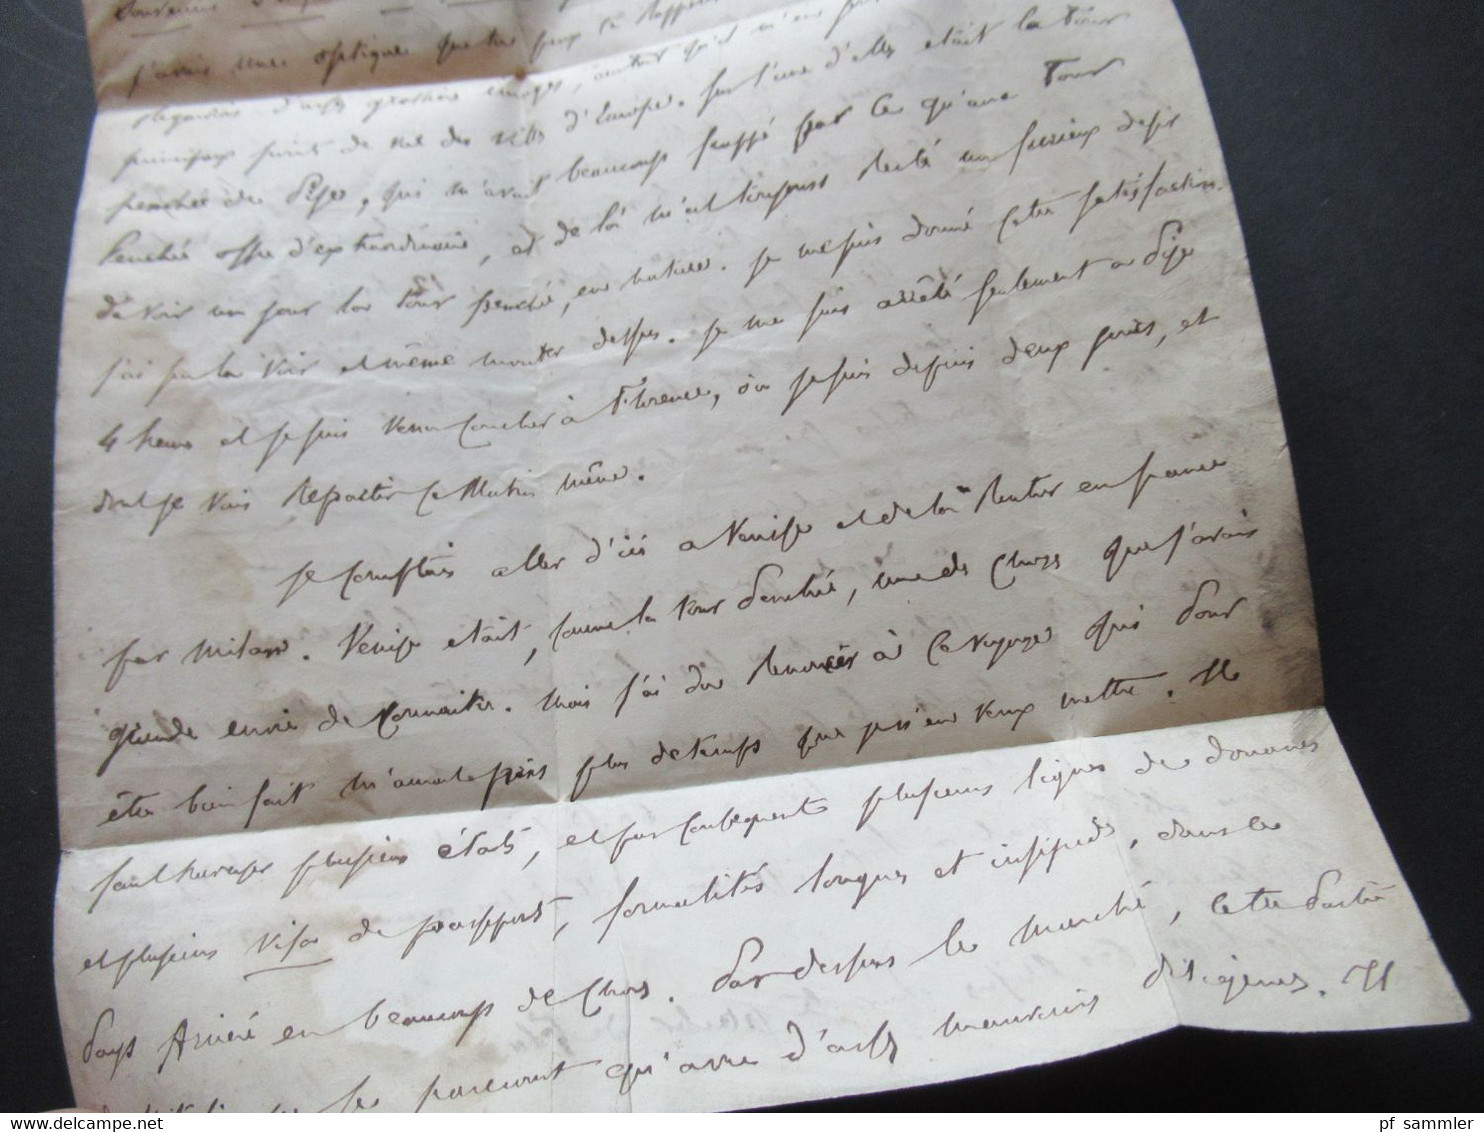 souvenirs
j'avais une optique que tu peux te rappeler
d'assez grossières images,
principaux points de vue des villes d'Europe. Sur l'une d'elles était la tour
penchée de Pise, qui m'avait beaucoup frappé par ce qu'une Tour
Penchée offre d'extraordinaire, et de là m'est toujours resté un furieux desir
de voir un jour la Tour penchée, en nature. Je me suis donné cette satisfaction.
j'ai pu la voir et même monter dessus. Je me suis arrêté seulement a Pise
4 heures et je suis venu coucher à Florence, où je suis depuis deux jours, et
dont je vais repartir ce Matin même.
Je comptais aller d'ici a Venise et de là rentrer en france
par Milan. Venise etait, comme la tour Penchée, une des choses que j'avais
grande envie de connaitre. Mais j'ai du renoncer à ce voyage qui Pour
être bien fait m'aurait pris plus de temps que je n'en veux mettre. Il
faut traverser plusieurs états, et par conséquent plusieurs lignes de douanes
et plusieurs visa de passeport, formalités longues et insipides, dans ce
Pays Arriéré en beaucoup de choses. Par dessus le marché, cette Partie
de l'Italie ne se parcourt qu'avec d'assez mauvaises diligences. Il
pf sammler
delcampe.net